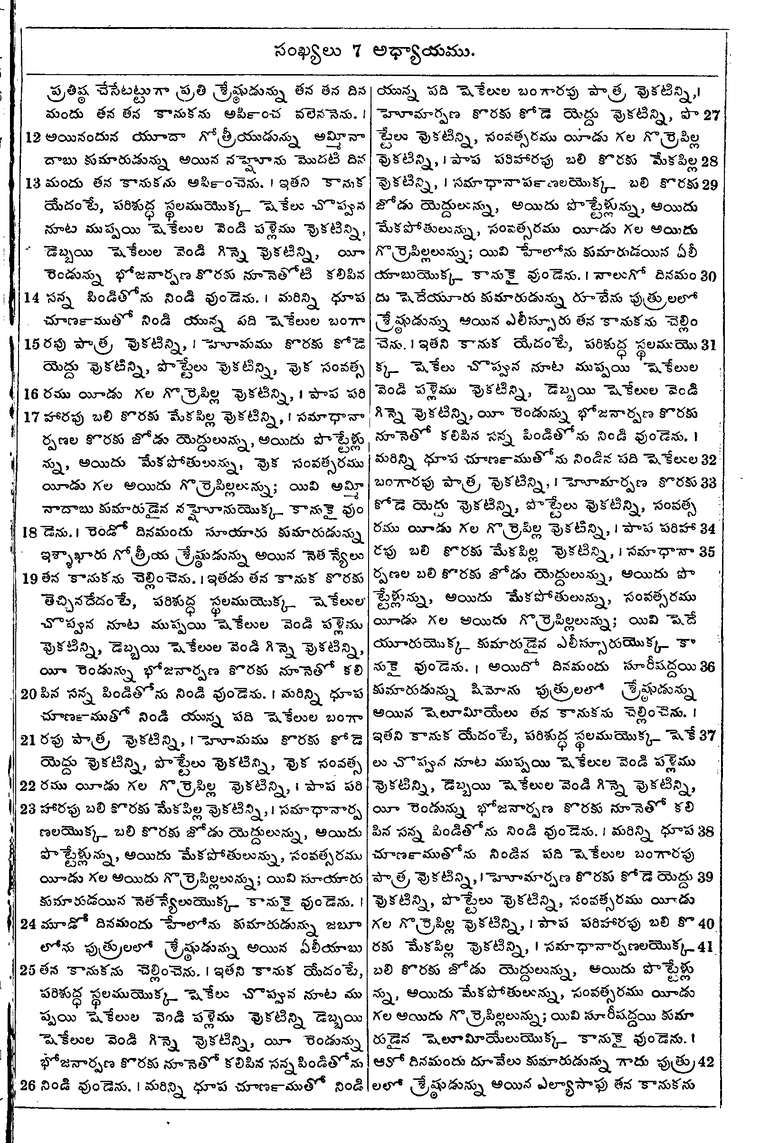 సంఖ్యలు 7 అధ్యాయము.
ప్రతిష్ఠ చేసేటట్టుగా ప్రతి శ్రేష్ఠుడున్ను తన తన దిన
మందు తన తన కానుకను అపిఁంచ వలెననెను. ।
12 అయినందున యూదా గోత్రీయుడున్ను అమ్మినా
దాబు కుమారుడున్ను అయిన నహ్షోను మొదటి దిన
13 మందు తన కానుకను అపిఁంచెను. । ఇతని కానుక
యేదంటే, పరిశుద్ధ స్థలముయొక్క షెకేలు చొప్పున
నూట ముప్పయి షెకేలుల వెండి పళ్లెము వొకటిన్ని,
డెబ్బయి షెకేలుల వెండి గిన్నె వొకటిన్ని, యీ
రెండున్ను భోజనార్పణ కొరకు నూనెతోటి కలిపిన
14 సన్న పిండితోను నిండి వుండెను. । మరిన్ని ధూప
చూణఁముతో నిండి యున్న పది షెకేలుల బంగా
15 రపు పాత్ర వొకటిన్ని, । హెూమము కొరకు కోడె
యెద్దు వొకటిన్ని, పొట్టేలు వొకటిన్ని, వొక సంవత్స
16 రము యీడు గల గొర్రెపిల్ల వొకటిన్ని, । పాప పరి
17 హారపు బలి కొరకు మేకపిల్ల వొకటిన్ని, । సమాధానా
ర్పణల కొరకు జోడు యెద్దులున్ను, అయిదు పొట్టేళ్లు
న్ను, అయిదు మేకపోతులున్ను, వొక సంవత్సరము
యీడు గల అయిదు గొర్రెపిల్లలున్ను; యివి అమ్మి
నాదాబు కుమారుడైన నహ్షోనుయొక్క కానుకై వుం
18 డెను. । రెండో దినమందు సూయారు కుమారుడున్ను
ఇశ్శాఖారు గోత్రీయ శ్రేష్ఠుడున్ను అయిన నెతన్యేలు
19 తన కానుకను చెల్లించెను. । ఇతడు తన కానుక కొరకు
తెచ్చినదేదంటే, పరిశుద్ధ స్థలముయొక్క షెకేలుల
చొప్పున నూట ముప్పయి షెకేలుల వెండి పళ్లెము
వొకటిన్ని, డెబ్బయి షెకేలుల వెండి గిన్నె వొకటిన్ని,
యీ రెండున్ను భోజనార్పణ కొరకు నూనెతో కలి
20 పిన సన్న పిండితోను నిండి వుండెను. । మరిన్ని ధూప
చూణఁముతో నిండి యున్న పది షెకేలుల బంగా
21 రపు పాత్ర వొకటిన్ని, । హెూమము కొరకు కోడె
యెద్దు వొకటిన్ని, పొట్టేలు వొకటిన్ని, వొక సంవత్స
22 రము యీడు గల గొర్రెపిల్ల వొకటిన్ని, । పాప పరి
23 హారపు బలి కొరకు మేకపిల్ల వొకటిన్ని, । సమాధానార్ప
ణలయొక్క బలి కొరకు జోడు యెద్దులున్ను, అయిదు
పొట్టేళ్లున్ను, అయిదు మేకపోతులున్ను, సంవత్సరము
యీడు గల అయిదు గొర్రెపిల్లలున్ను; యివి సూయారు
కుమారుడయిన నెతన్యేలుయొక్క కానుకై వుండెను. ।
24 మూడో దినమందు హేలోను కుమారుడున్ను జబూ
లోను పుత్రులలో శ్రేష్ఠుడున్ను అయిన ఏలీయాబు
25 తన కానుకను చెల్లించెను. । ఇతని కానుక యేదంటే,
పరిశుద్ధ స్థలముయొక్క షెకేలు చొప్పున నూట ము
ప్పయి షెకేలుల వెండి పళ్లెము వొకటిన్ని డెబ్బయి
షెకేలుల వెండి గిన్నె వొకటిన్ని, యీ రెండున్ను
భోజనార్పణ కొరకు నూనెతో కలిపిన సన్న పిండితోను
26 నిండి వుండెను. । మరిన్ని ధూప చూణఁముతో నిండి
యున్న పది షెకేలుల బంగారపు పాత్ర వొకటిన్ని, ।
హెూమార్పణ కొరకు కోడె యెద్దు వొకటిన్ని, పొ 27
ట్టేలు వొకటిన్ని, సంవత్సరము యీడు గల గొర్రెపిల్ల
వొకటిన్ని, । పాప పరిహారపు బలి కొరకు మేకపిల్ల 28
వొకటిన్ని, । సమాధానాపఁణలయొక్క బలి కొరకు 29
జోడు యెద్దులున్ను, అయిదు పొట్టేళ్లున్ను, అయిదు
మేకపోతులున్ను, సంవత్సరము యీడు గల అయిదు
గొర్రెపిల్లలున్ను; యివి హేలోను కుమారుడయిన ఏలీ
యాబుయొక్క కానుకై వుండెను. । నాలుగో దినమం 30
దు షెదేయూరు కుమారుడున్ను రూబేను పుత్రులలో
శ్రేష్ఠుడున్ను అయిన ఎలీస్సూరు తన కానుకను చెల్లిం
చెను. । ఇతని కానుక యేదంటే, పరిశుద్ధ స్థలముయొ 31
క్క షెకేలు చొప్పున నూట ముప్పయి షెకేలుల
వెండి పళ్లెము వొకటిన్ని, డెబ్బయి షెకేలుల వెండి
గిన్నె వొకటిన్ని, యీ రెండున్ను భోజనార్పణ కొరకు
నూనెతో కలిపిన సన్న పిండితోను నిండి వుండెను. ।
మరిన్ని ధూప చూణఁముతో నిండిన పది షెకేలుల 32
బంగారపు పాత్ర వొకటిన్ని, । హెూమార్పణ కొరకు 33
కోడె యెద్దు వొకటిన్ని, పొట్టేలు వొకటిన్ని, సంవత్స
రము యీడు గల గొర్రెపిల్ల వొకటిన్ని, । పాప పరిహా 34
రపు బలి కొరకు మేకపిల్ల వొకటిన్ని, । సమాధానా 35
ర్పణల బలి కొరకు జోడు యెద్దులున్ను, అయిదు పొ
ట్టేళ్లున్ను, అయిదు మేకపోతులున్ను, సంవత్సరము
యీడు గల అయిదు గొర్రెపిల్లలున్ను; యివి షెదే
యూరుయొక్క కుమారుడైన ఎలీస్సూరుయొక్క కా
నుకై వుండెను. । అయిదో దినమందు సూరీషద్దయి 36
కుమారుడున్ను షిమోను పుత్రులలో శ్రేష్ఠుడున్ను
అయిన షెలూమీయేలు తన కానుకను చెల్లించెను. ।
ఇతని కానుక యేదంటే, పరిశుద్ధ స్థలముయొక్క షెకే 37
లు చొప్పున నూట ముప్పయి షెకేలుల వెండి పళ్లెము
వొకటిన్ని, డెబ్బయి షెకేలుల వెండి గిన్నె వొకటిన్ని,
యీ రెండున్ను భోజనార్పణ కొరకు నూనెతో కలి
పిన సన్న పిండితోను నిండి వుండెను. । మరిన్ని ధూప 38
చూణఁముతోను నిండిన పది షెకేలుల బంగారపు
పాత్ర వొకటిన్ని, । హెూమార్పణ కొరకు కోడె యెద్దు 39
వొకటిన్ని, పొట్టేలు వొకటిన్ని, సంవత్సరము యీడు
గల గొర్రెపిల్ల వొకటిన్ని, । పాప పరిహారపు బలి కొ 40
రకు మేకపిల్ల వొకటిన్ని, । సమాధానార్పణలయొక్క 41
బలి కొరకు జోడు యెద్దులున్ను, అయిదు పొట్టేళ్లు
న్ను, అయిదు మేకపోతులున్ను, సంవత్సరము యీడు
గల అయిదు గొర్రెపిల్లలున్ను; యివి సూరీషద్దయి కుమా
రుడైన షెలూమీయేలుయొక్క కానుకై వుండెను. ।
ఆరో దినమందు దూవేలు కుమారుడున్ను గాదు పుత్రు 42
లలో శ్రేష్ఠుడున్ను అయిన ఎల్యాసాఫు తన కానుకను